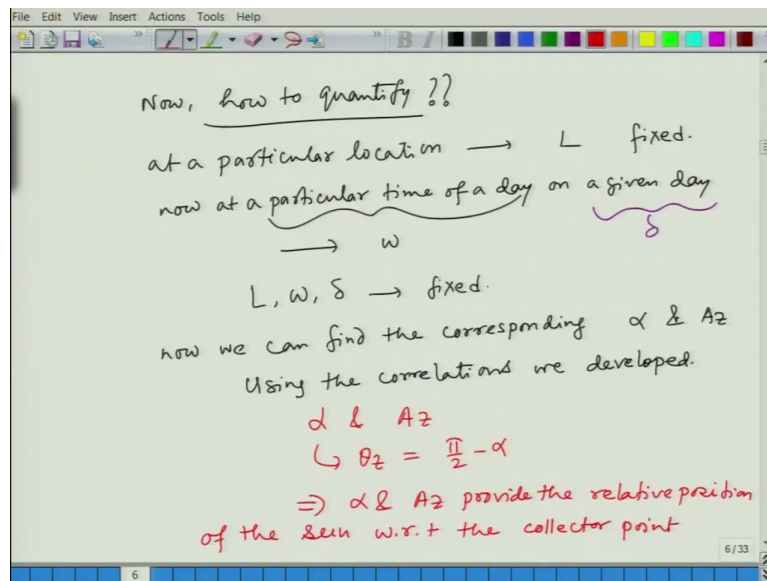 File Edit View Insert Actions Tools Help
Now, how to quantify ??
at a particular location → L fixed.
now at a particular time of a day on a given day
→ ω δ
L, ω, δ → fixed.
now we can find the corresponding α & Az
Using the correlations we developed.
α & Az
↳ θz = π/2 - α
⇒ α & Az provide the relative position
of the sun w.r.t the collector point
6/33
6